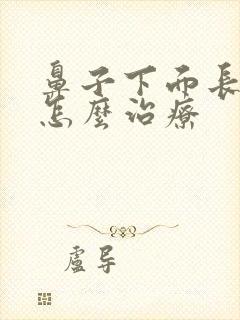 鼻子下面長
怎麼治療
盧导